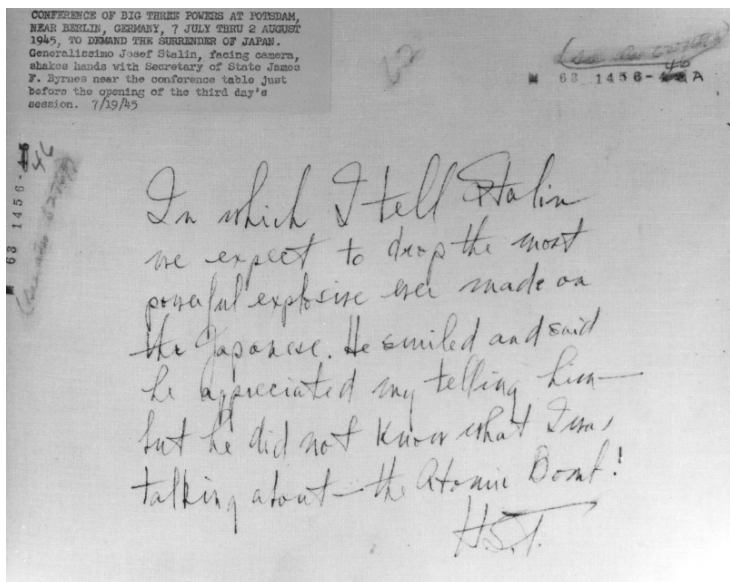 CONFERENCE OF BIG THREE POWERS AT POTSDAM,
NEAR BERLIN, GERMANY, 7 JULY THRU 2 AUGUST
1945, TO DEMAND THE SURRENDER OF JAPAN.
Generalissimo Josef Stalin, facing camera,
shakes hands with Secretary of State James
F. Byrnes near the conference table just
before the opening of the third day's
session. 7/19/45
62
63 1456-46 A
63 1456-46
In which I tell Stalin
we expect to drop the most
powerful explosive ever made on
the Japanese. He smiled and said
he appreciated my telling him—
but he did not know what I was
talking about—the Atomic Bomb!
H.S.T.